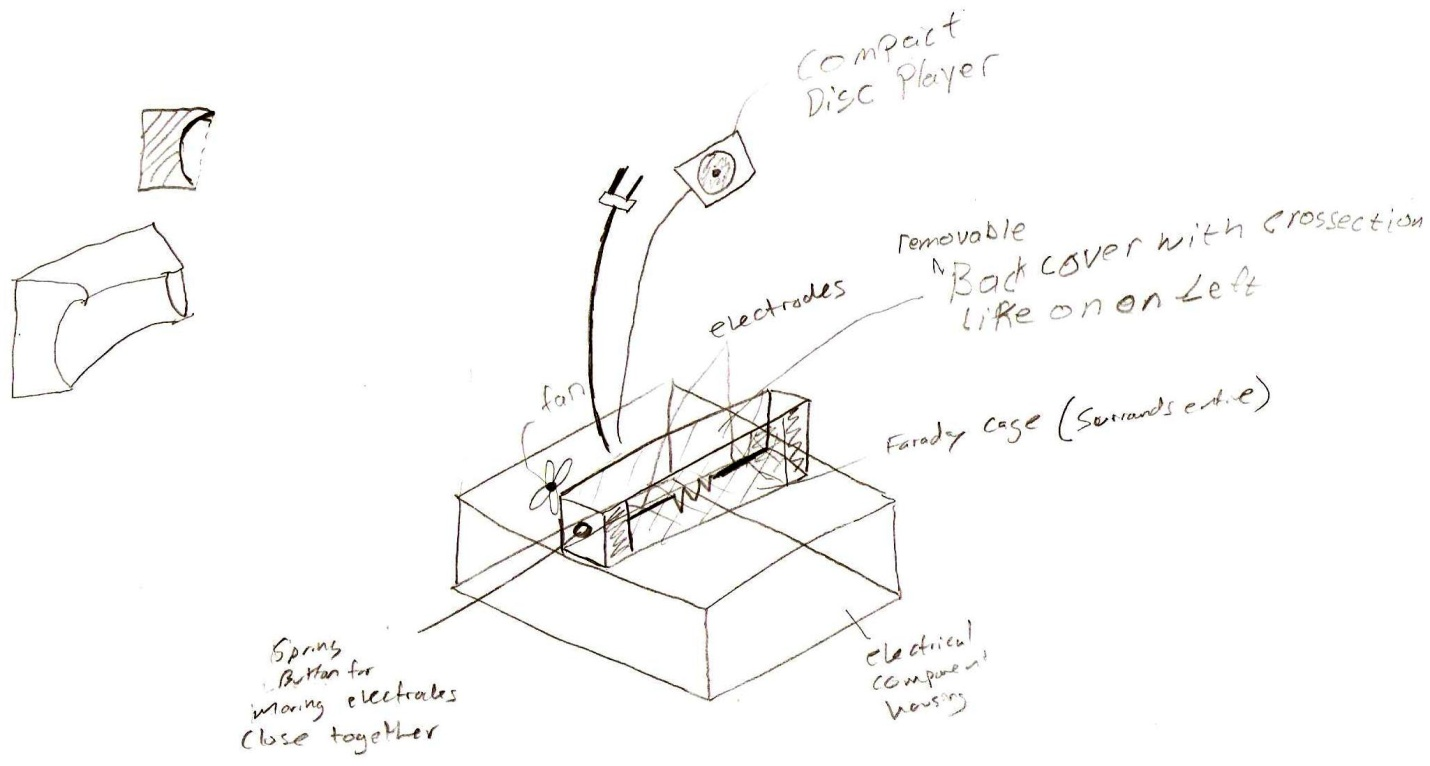 Compact
Disc Player
removable
Back cover with crossection
like on on Left
electrodes
fan
Faraday cage (Surrounds entire)
Spring
Button for
moving electrodes
Close together
electrical
component
housing